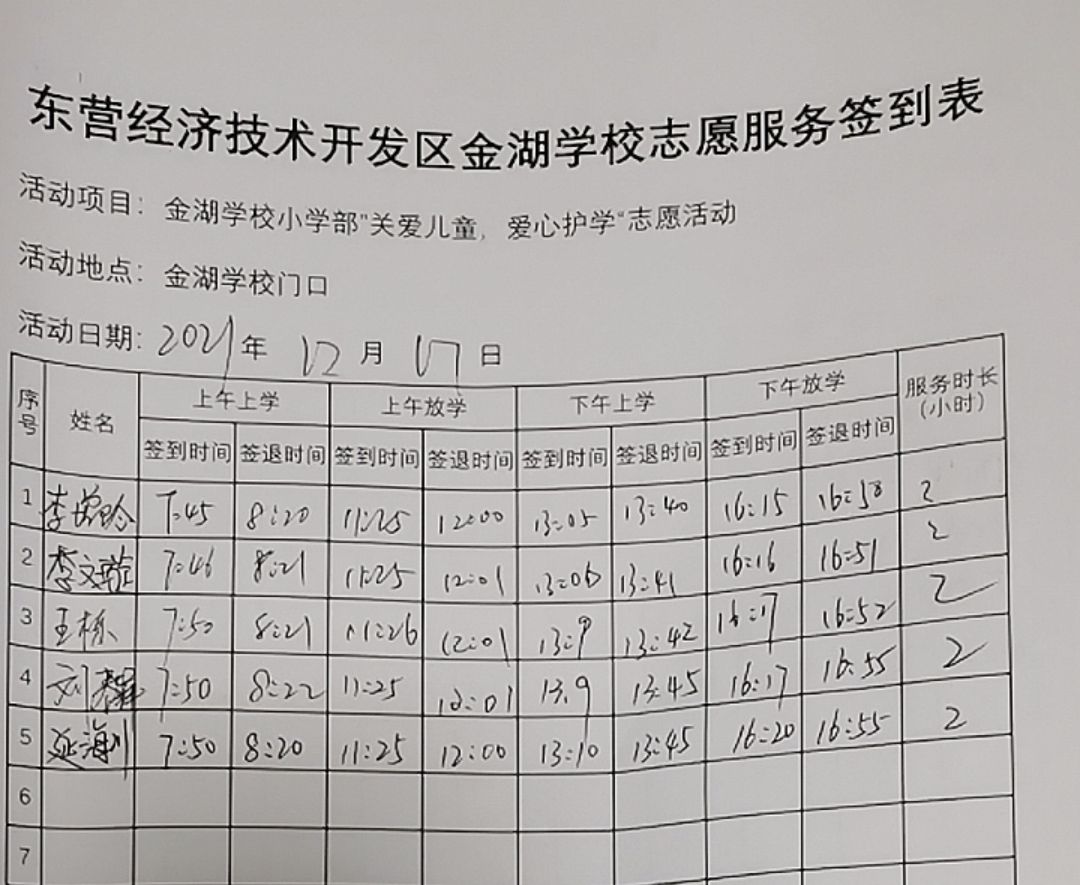 东营经济技术开发区金湖学校志愿服务签到表
活动项目：金湖学校小学部"关爱儿童，爱心护学"志愿活动
活动地点：金湖学校门口
活动日期：2021年 12月 17日
序号 姓名 上午上学 上午放学 下午上学 下午放学 服务时长（小时）
签到时间 签退时间 签到时间 签退时间 签到时间 签退时间 签到时间 签退时间
1 李 7:45 8:20 11:25 12:00 13:05 13:40 16:15 16:58 2
2 李文 7:46 8:21 11:25 12:01 13:06 13:41 16:16 16:51 2
3 王栋 7:50 8:21 11:26 12:01 13:9 13:42 16:17 16:52 2
4 刘 7:50 8:22 11:25 12:01 13.9 13:45 16:17 16:55 2
5 延海川 7:50 8:20 11:25 12:00 13:10 13:45 16:20 16:55 2
6
7